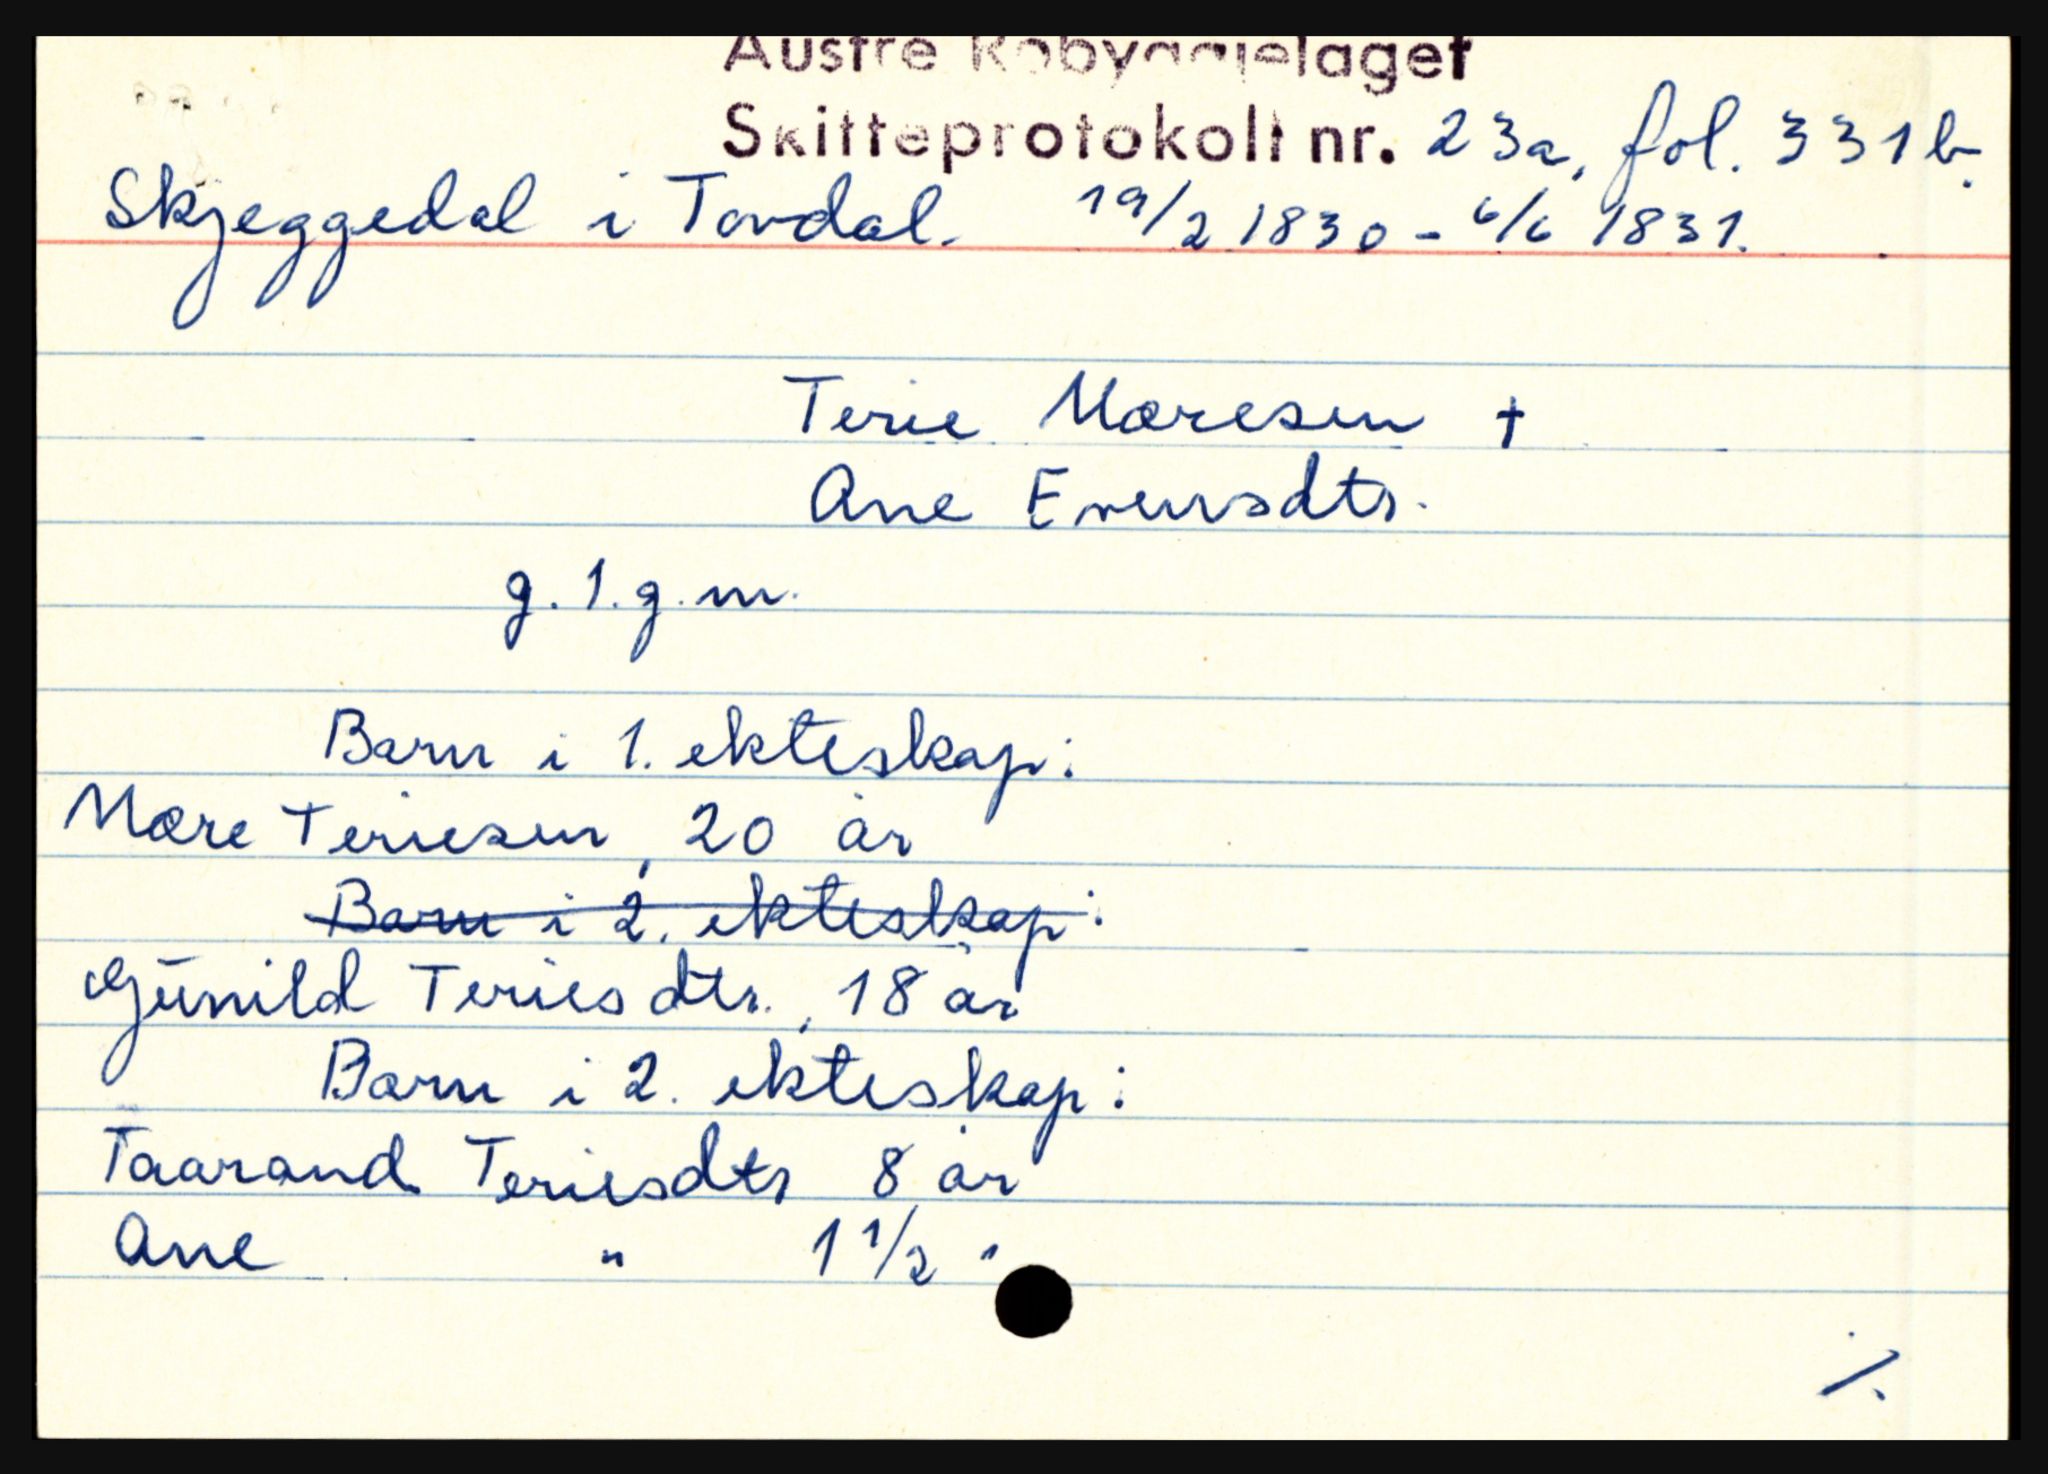 Austre Robyggjelaget
Skifteprotokoll nr. 23a, fol. 331b.
Skjeggedal i Tovdal. 19/2 1830 - 6/6 1831.
Terie Mæresen †
Ane Evensdtr.
g. 1. g. m.
Barn i 1. ekteskap:
Mære Teriesen, 20 år
Barn i 2. ekteskap:
Gunild Teriesdtr., 18 år
Barn i 2. ekteskap:
Taarand Teriesdtr 8 år
Ane " 1 1/2 "
./.